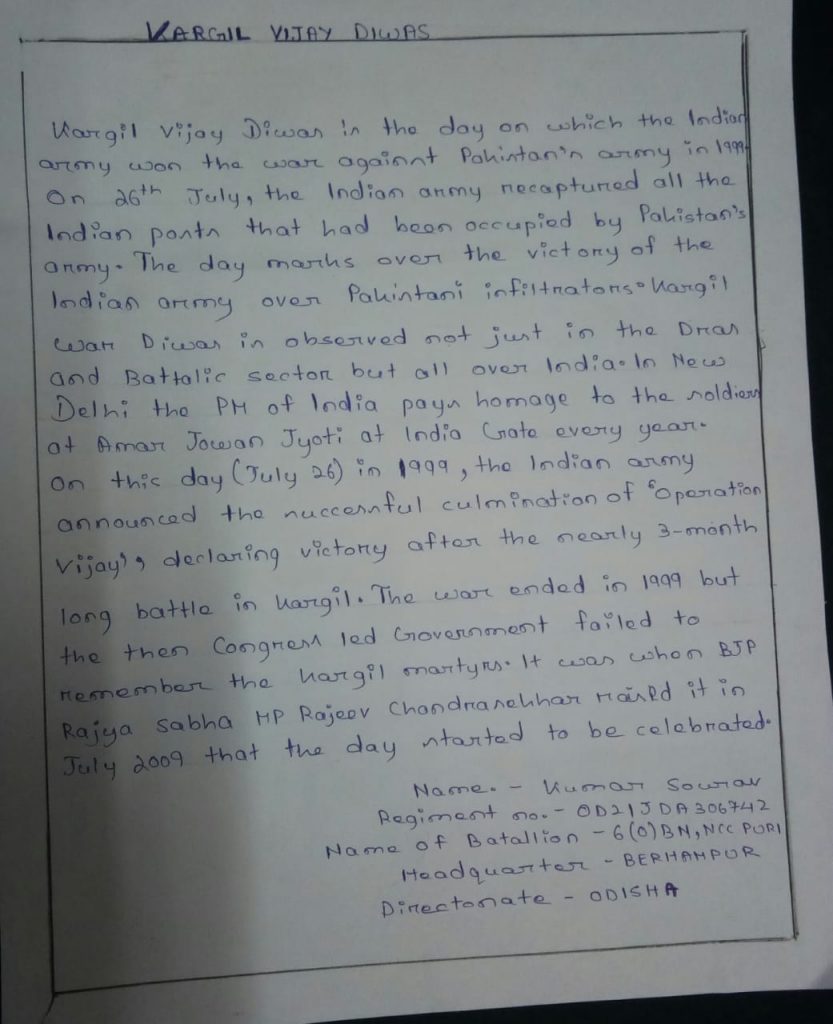 KARGIL VIJAY DIWAS
Kargil Vijay Diwas is the day on which the Indian
army won the war against Pakistan's army in 1999.
On 26th July, the Indian army recaptured all the
Indian posts that had been occupied by Pakistan's
army. The day marks over the victory of the
Indian army over Pakistani infiltrators. Kargil
War Diwas is observed not just in the Dras
and Battalic sector but all over India. In New
Delhi the PM of India pays homage to the soldiers
at Amar Jowan Jyoti at India Gate every year.
On this day (July 26) in 1999, the Indian army
announced the successful culmination of "Operation
Vijay", declaring victory after the nearly 3-month
long battle in Kargil. The war ended in 1999 but
the then Congress led Government failed to
remember the Kargil martyrs. It was when BJP
Rajya Sabha MP Rajeev Chandrasekhar raised it in
July 2009 that the day started to be celebrated.
Name. - Kumar Sourav
Regiment no. - OD21JDA306742
Name of Batallion - 6(O)BN, NCC PURI
Headquarter - BERHAMPUR
Directorate - ODISHA